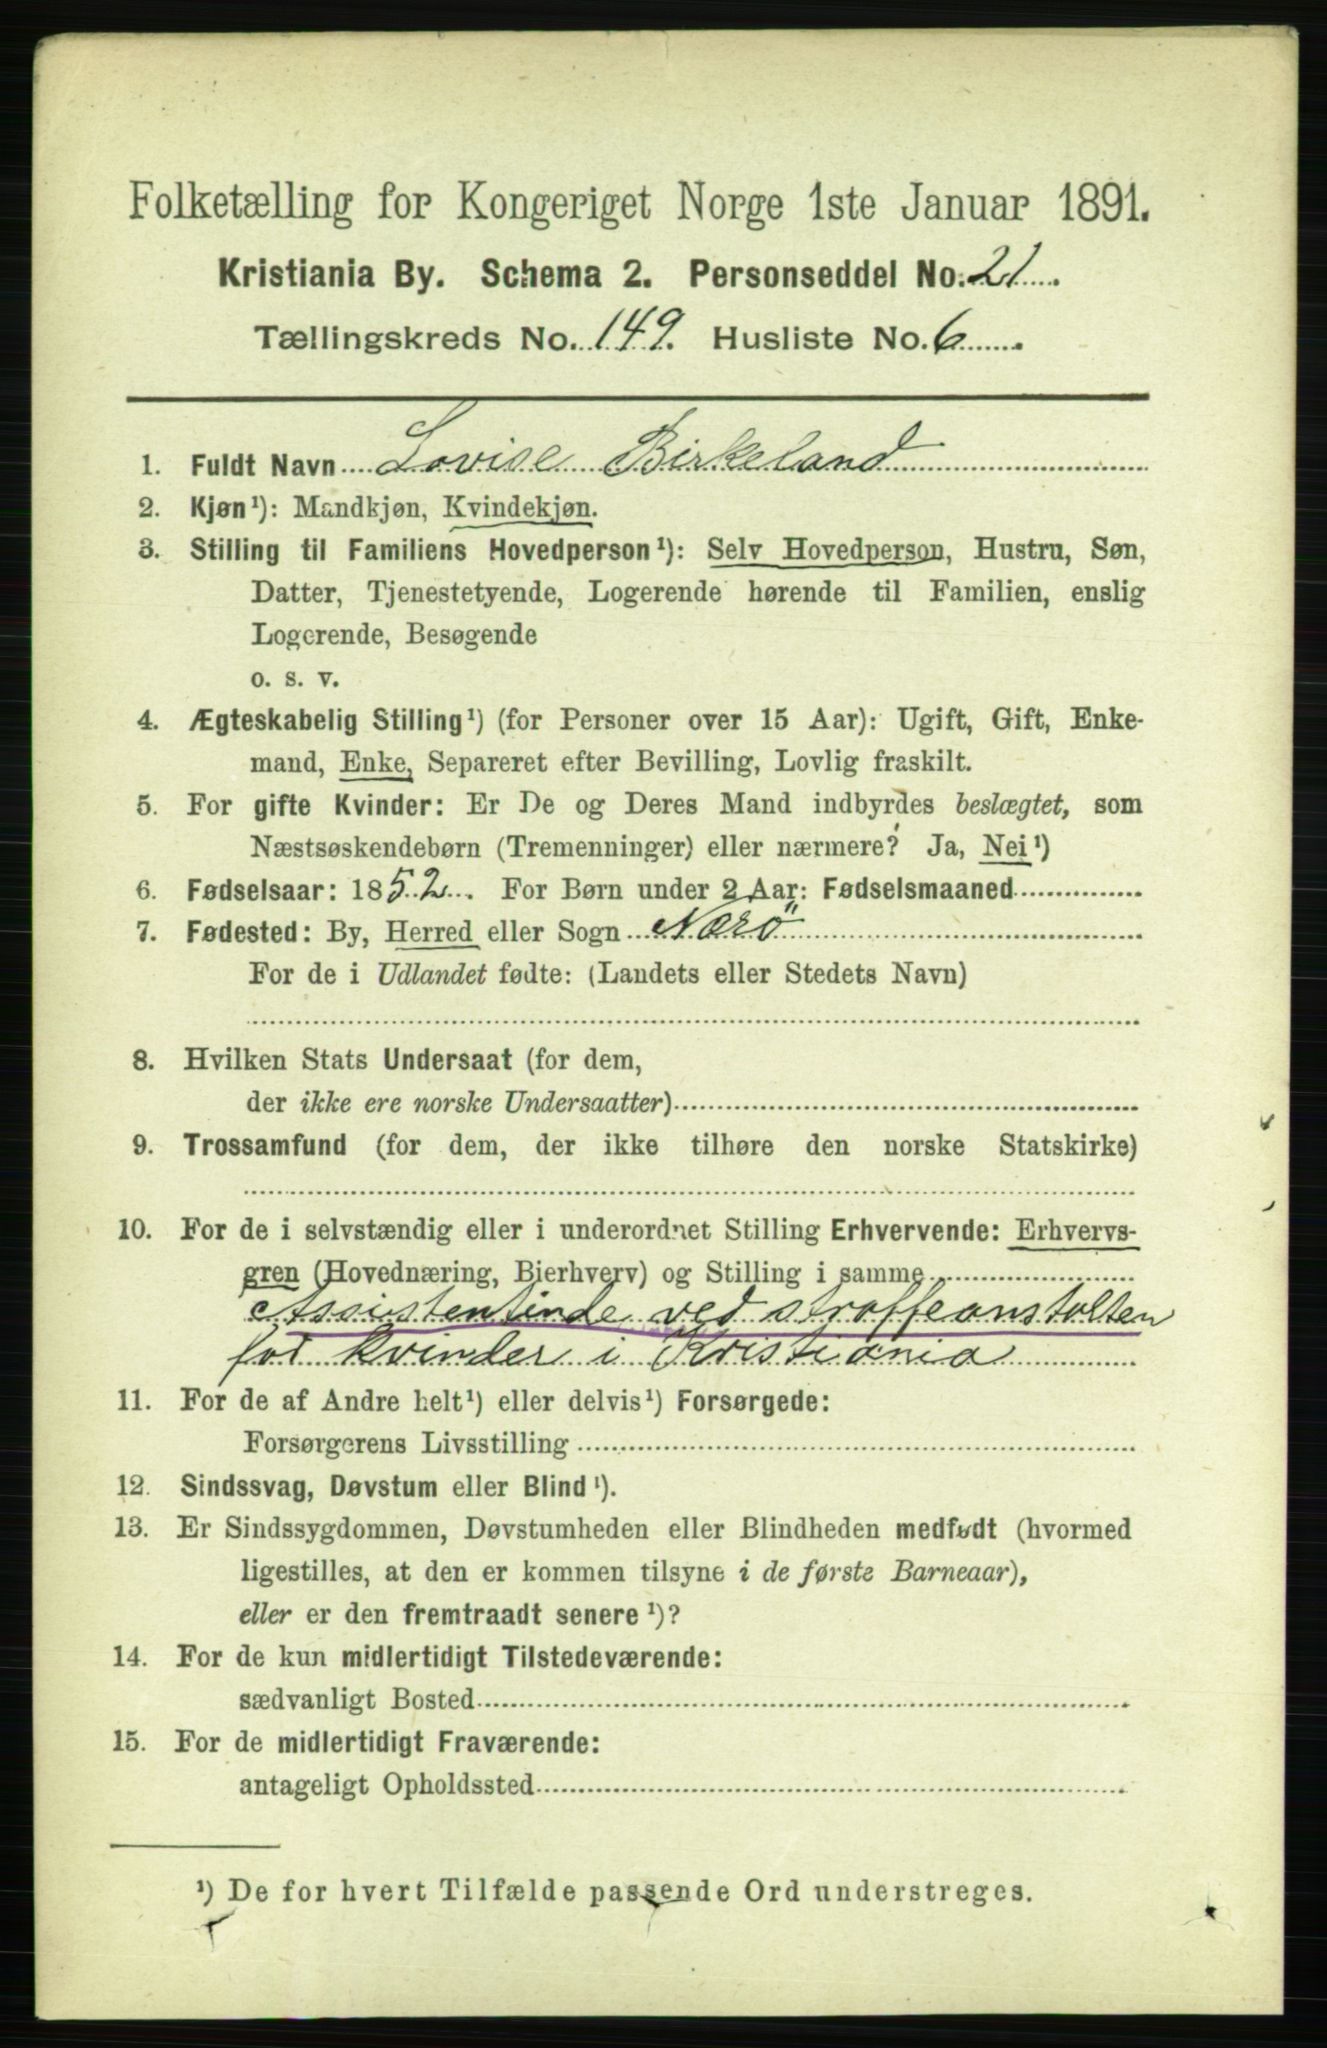 Folketælling for Kongeriget Norge 1ste Januar 1891.
Kristiania By. Schema 2. Personseddel No. 21
Tællingskreds No. 149. Husliste No. 6
1. Fuldt Navn Lovise Birkeland
2. Kjøn¹): Mandkjøn, Kvindekjøn.
3. Stilling til Familiens Hovedperson¹): Selv Hovedperson, Hustru, Søn,
Datter, Tjenestetyende, Logerende hørende til Familien, enslig
Logerende, Besøgende
o. s. v.
4. Ægteskabelig Stilling¹) (for Personer over 15 Aar): Ugift, Gift, Enke-
mand, Enke, Separeret efter Bevilling, Lovlig fraskilt.
5. For gifte Kvinder: Er De og Deres Mand indbyrdes beslægtet, som
Næstsøskendebørn (Tremenninger) eller nærmere? Ja, Nei¹)
6. Fødselsaar: 1852. For Børn under 2 Aar: Fødselsmaaned
7. Fødested: By, Herred eller Sogn Nærö
For de i Udlandet fødte: (Landets eller Stedets Navn)
8. Hvilken Stats Undersaat (for dem,
der ikke ere norske Undersaatter)
9. Trossamfund (for dem, der ikke tilhøre den norske Statskirke)
10. For de i selvstændig eller i underordnet Stilling Erhvervende: Erhvervs-
gren (Hovednæring, Bierhverv) og Stilling i samme
Assistentinde ved straffeanstalten
for kvinder i Kristiania
11. For de af Andre helt¹) eller delvis¹) Forsørgede:
Forsørgerens Livsstilling
12. Sindssvag, Døvstum eller Blind¹).
13. Er Sindssygdommen, Døvstumheden eller Blindheden medfødt (hvormed
ligestilles, at den er kommen tilsyne i de første Barneaar),
eller er den fremtraadt senere¹)?
14. For de kun midlertidigt Tilstedeværende:
sædvanligt Bosted
15. For de midlertidigt Fraværende:
antageligt Opholdssted
¹) De for hvert Tilfælde passende Ord understreges.